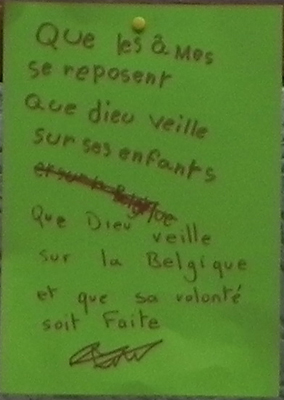 Que les âmes
se reposent
Que dieu veille
sur ses enfants
et sur la Belgique
Que Dieu veille
sur la Belgique
et que sa volonté
soit Faite